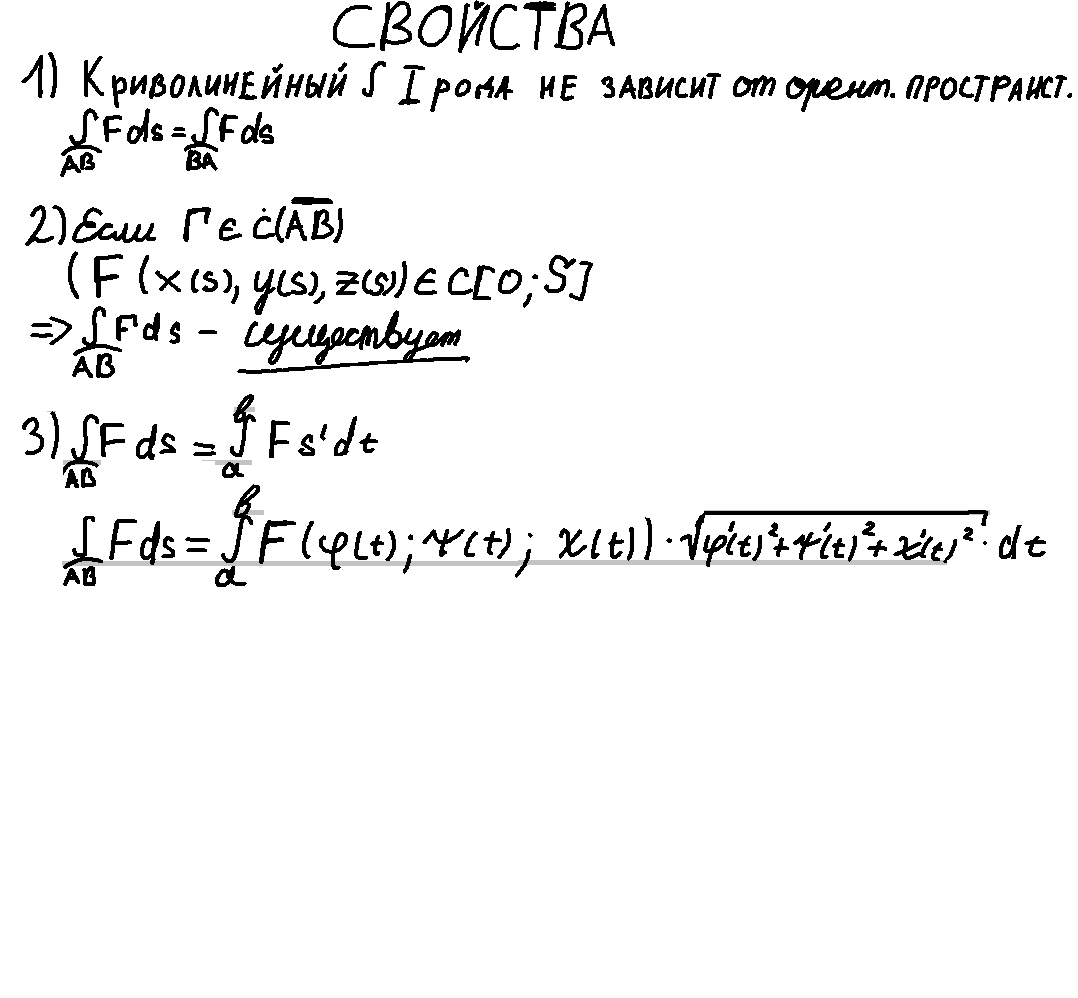 СВОЙСТВА
1) Криволинейный ∫ I рода НЕ ЗАВИСИТ от ориент. ПРОСТРАНСТ.
∫_{AB} F ds = ∫_{BA} F ds
2) Если F ∈ C(AB)
(F (x(s), y(s), z(s)) ∈ C[0; S]
=> ∫_{AB} F ds – существует
3) ∫_{AB} F ds = ∫_a^b F s' dt
∫_{AB} F ds = ∫_a^b F (φ(t); ψ(t); χ(t)) · √(φ'(t)² + ψ'(t)² + χ'(t)²) · dt